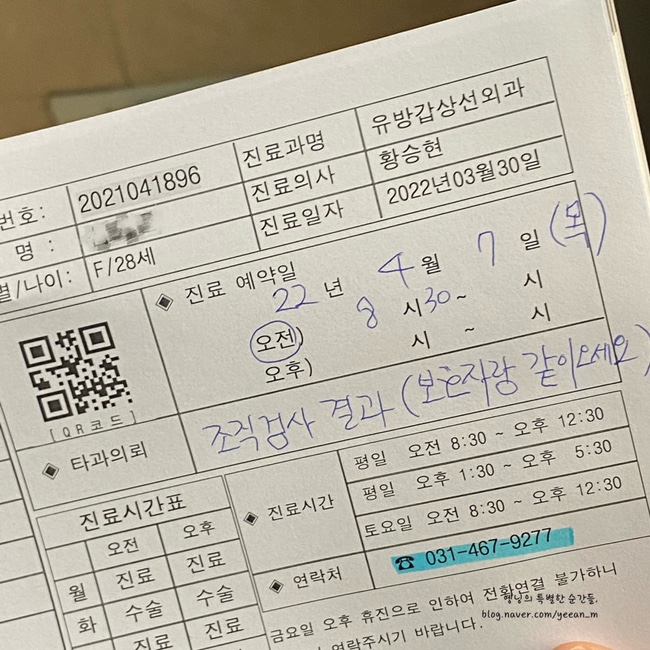 번호: 2021041896 진료과명 유방갑상선외과
명 : 진료의사 황승현
별/나이: F/28세 진료일자 2022년03월30일
◈ 진료 예약일
22 년 4 월 7 일 (목)
오전) 8 시 30 ~ 시
오후) 시 ~ 시
[QR코드]
◈ 타과의뢰
조직검사 결과 (보호자랑 같이오세요)
진료시간표
오전 오후
월 진료 진료
화 수술 수술
진료 진료
◈ 진료시간
평일 오전 8:30 ~ 오후 12:30
평일 오후 1:30 ~ 오후 5:30
토요일 오전 8:30 ~ 오후 12:30
◈ 연락처 ☎ 031-467-9277
금요일 오후 휴진으로 인하여 전화연결 불가하니
연락주시기 바랍니다.
행닝의 특별한 순간들,
blog.naver.com/yeean_m